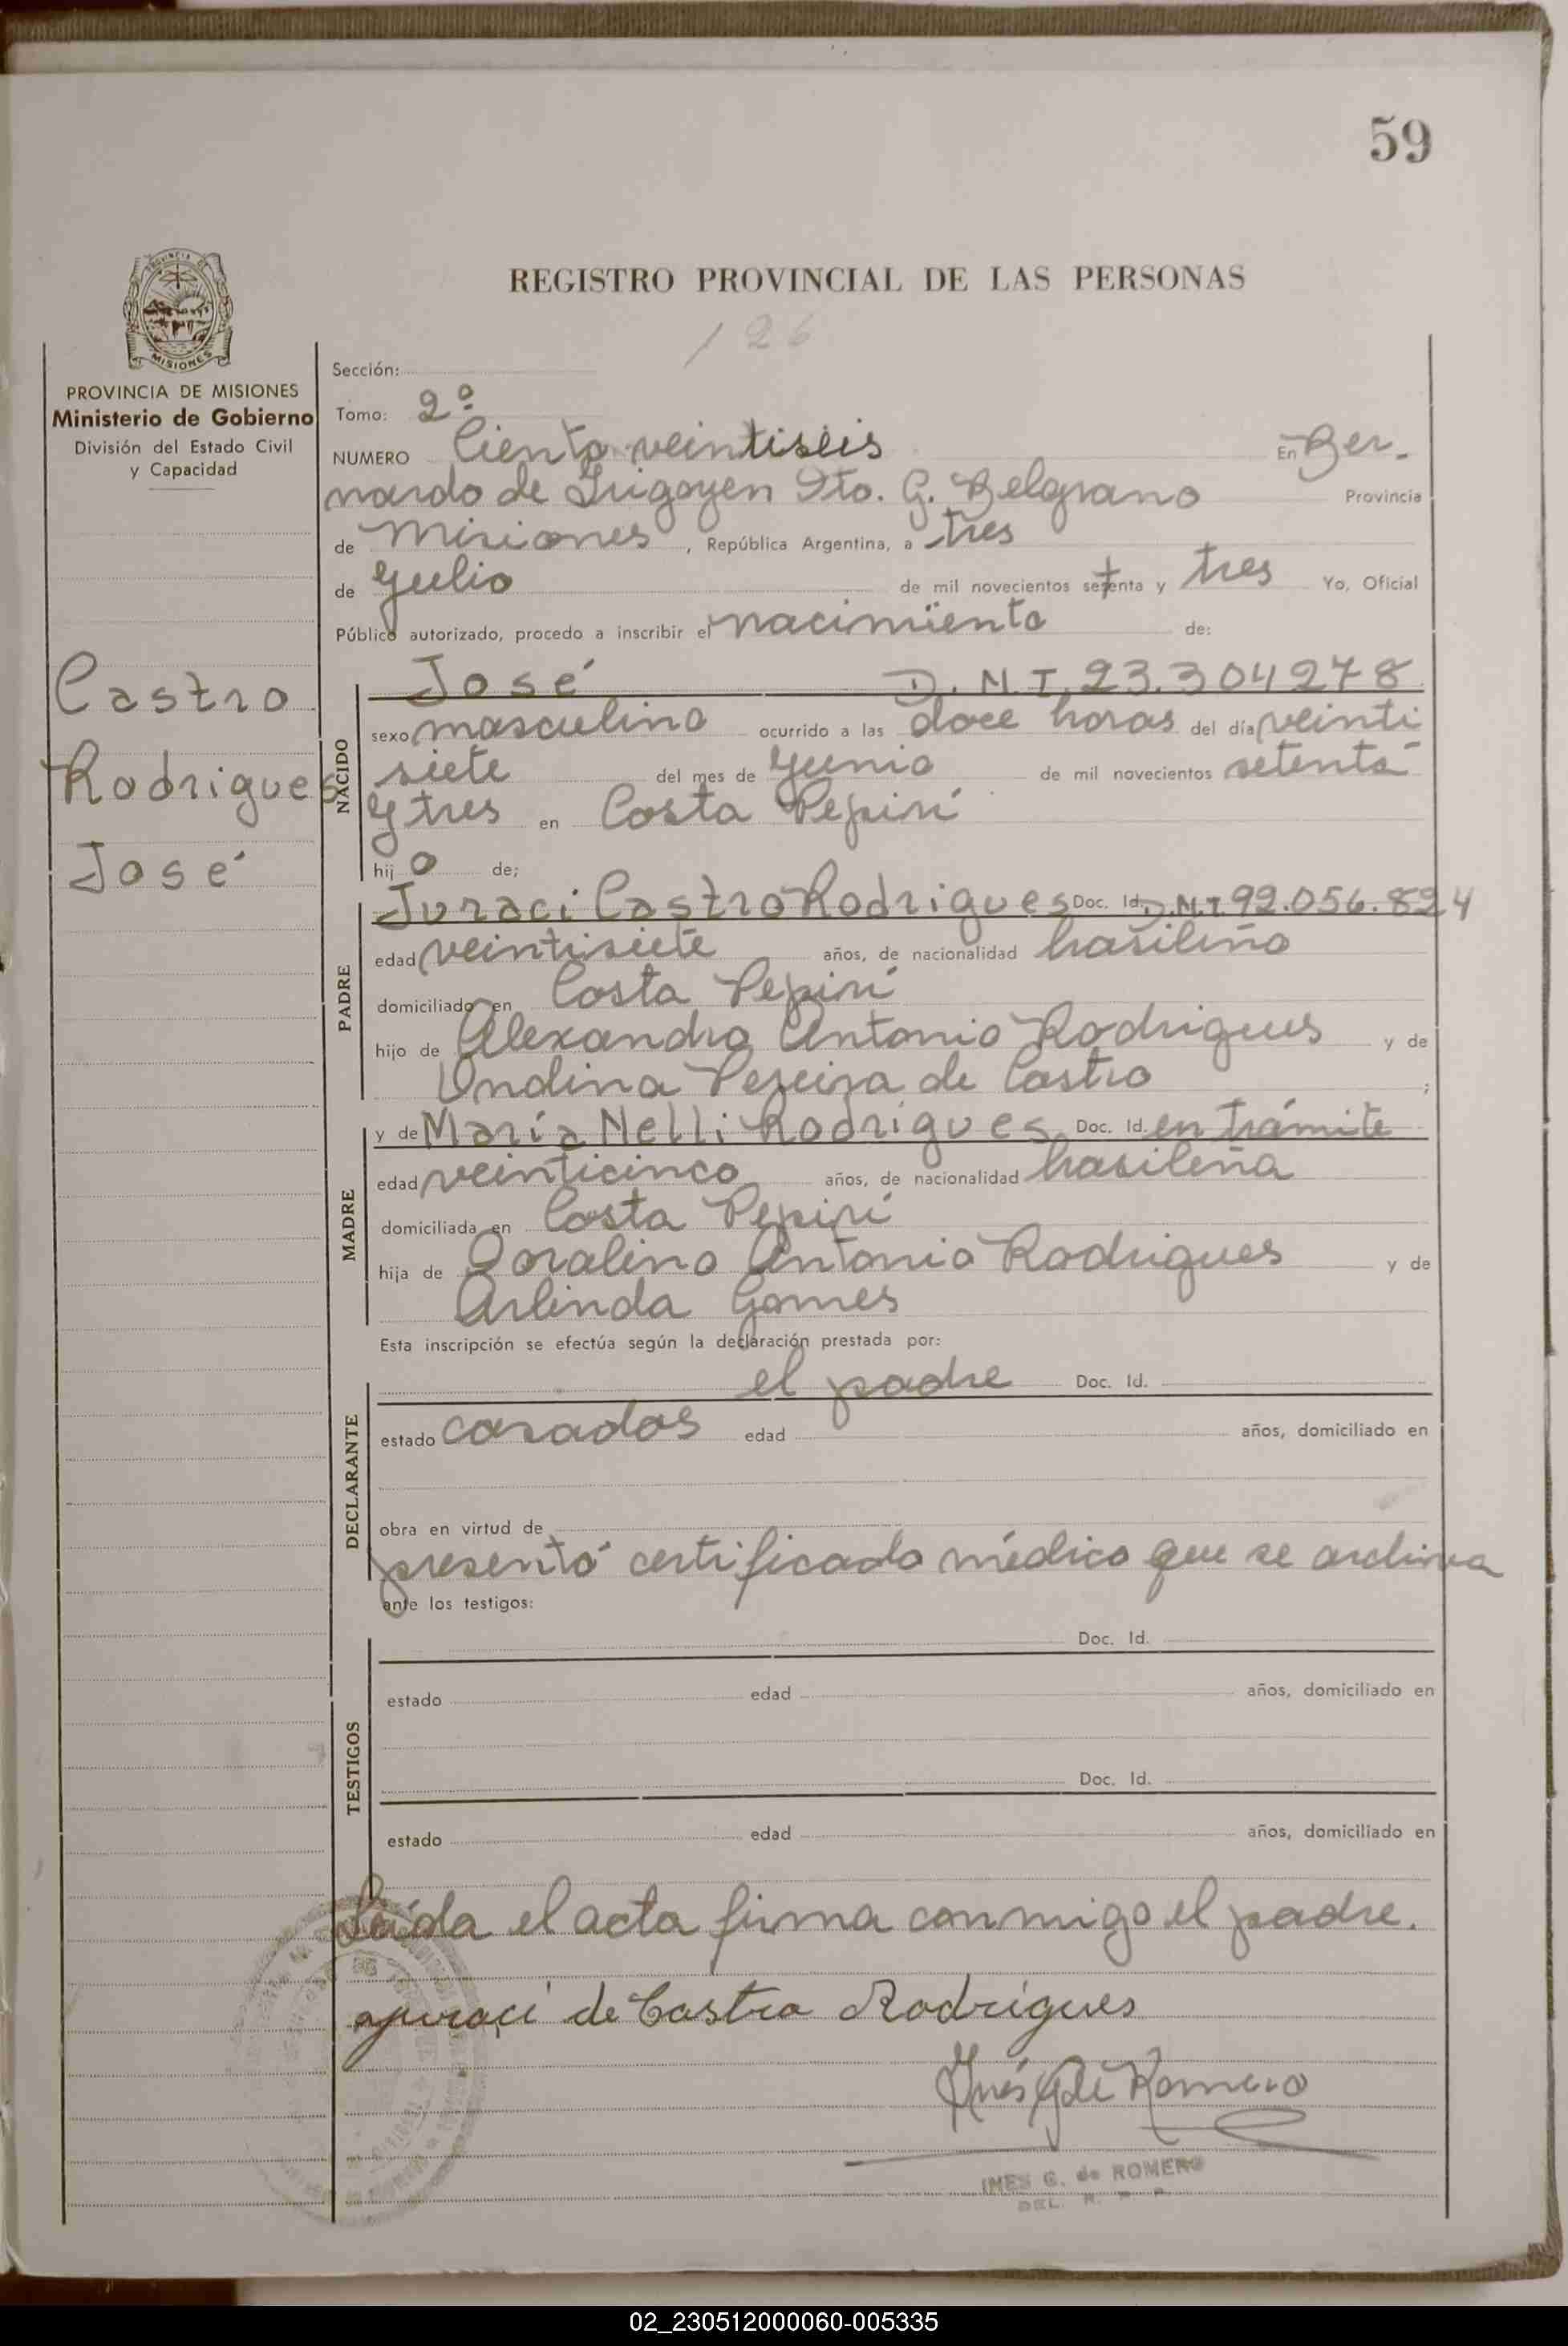 59
REGISTRO PROVINCIAL DE LAS PERSONAS
126
PROVINCIA DE
MISIONES
PROVINCIA DE MISIONES
Ministerio de Gobierno
División del Estado Civil
y Capacidad
Castro
Rodrigues
José
Sección:
Tomo: 2º
NUMERO Ciento veintiséis En Ber-
nardo de Irigoyen Dto. G. Belgrano Provincia
de Misiones, República Argentina, a tres
de Julio de mil novecientos setenta y tres Yo, Oficial
Público autorizado, procedo a inscribir el nacimiento de:
José D.N.I. 23.304278
NACIDO
sexo masculino ocurrido a las doce horas del día veinti
siete del mes de Junio de mil novecientos setenta
y tres en Costa Pepirí
hijo de;
PADRE
Juraci Castro Rodrigues Doc. Id. D.N.I. 92.056.824
edad veintisiete años, de nacionalidad brasileño
domiciliado en Costa Pepirí
hijo de Alexandro Antonio Rodrigues y de
Undina Pereira de Castro ;
MADRE
y de María Nelli Rodrigues Doc. Id. en trámite
edad veinticinco años, de nacionalidad brasileña
domiciliada en Costa Pepirí
hija de Doralino Antonio Rodrigues y de
Arlinda Gomes
Esta inscripción se efectúa según la declaración prestada por:
DECLARANTE
el padre Doc. Id.
estado casados edad años, domiciliado en
obra en virtud de
presentó certificado médico que se archiva
ante los testigos:
TESTIGOS
Doc. Id.
estado edad años, domiciliado en
Doc. Id.
estado edad años, domiciliado en
Leída el acta firma conmigo el padre.
Juraci de Castro Rodrigues
Inés G de Romero
INES G. de ROMERO
DEL. R. P. P.
02_230512000060-005335